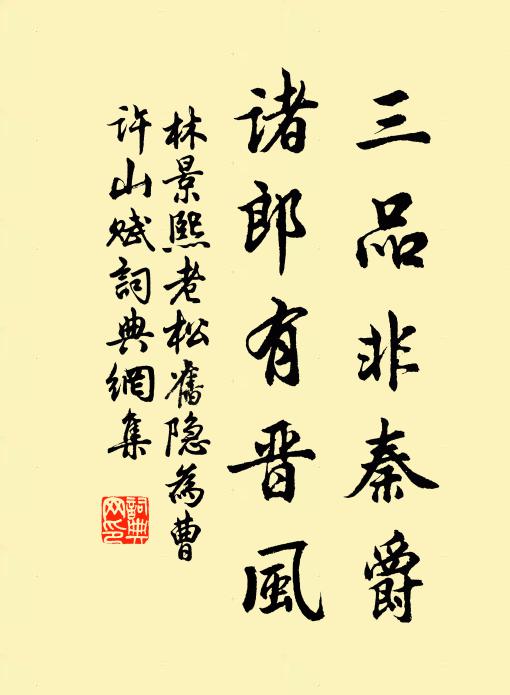 三品非秦爵
诸郎有晋風
林景熙老松舊隐為曹
许山赋詞典網集
詞典网印